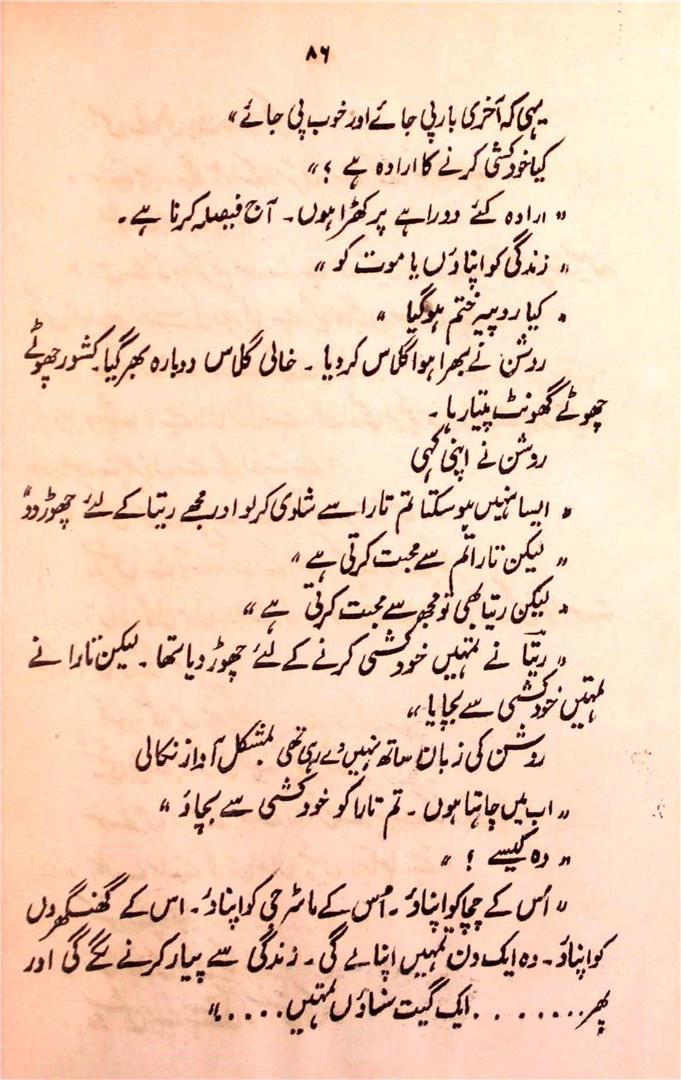 ۸۶
یہی کہ آخری بار پی جائے اور خوب پی جائے"
کیا خودکشی کرنے کا ارادہ ہے ؟"
" ارادہ کئے دوراہے پر کھڑا ہوں۔ آج فیصلہ کرنا ہے۔
" زندگی کو اپناؤں یا موت کو "
" کیا روپیہ ختم ہو گیا "
روشن نے بھرا ہوا گلاس کر دیا ۔ خالی گلاس دوبارہ بھر گیا۔ کشور چھوٹے
چھوٹے گھونٹ پیتا رہا ۔
روشن نے اپنی کہی
" ایسا نہیں ہو سکتا تم تارا سے شادی کر لو اور مجھے ریتا کے لئے چھوڑ دو"
" لیکن تارا تم سے محبت کرتی ہے "
" لیکن ریتا بھی تو مجھ سے محبت کرتی ہے "
" ریتا نے تمہیں خودکشی کرنے کے لئے چھوڑ دیا تھا ۔ لیکن تارا نے
تمہیں خودکشی سے بچایا "
روشن کی زبان ساتھ نہیں دے رہی تھی بمشکل آواز نکالی
" اب میں چاہتا ہوں ۔ تم تارا کو خودکشی سے بچاؤ "
" وہ کیسے ؟ "
" اُس کے چچا کو اپناؤ ۔ اُس کے ماسٹر جی کو اپناؤ ۔ اس کے گھنگھروں
کو اپناؤ ۔ وہ ایک دن تمہیں اپنالے گی ۔ زندگی سے پیار کرنے لگے گی اور
پھر ........ ایک گیت سناؤں تمہیں ....."